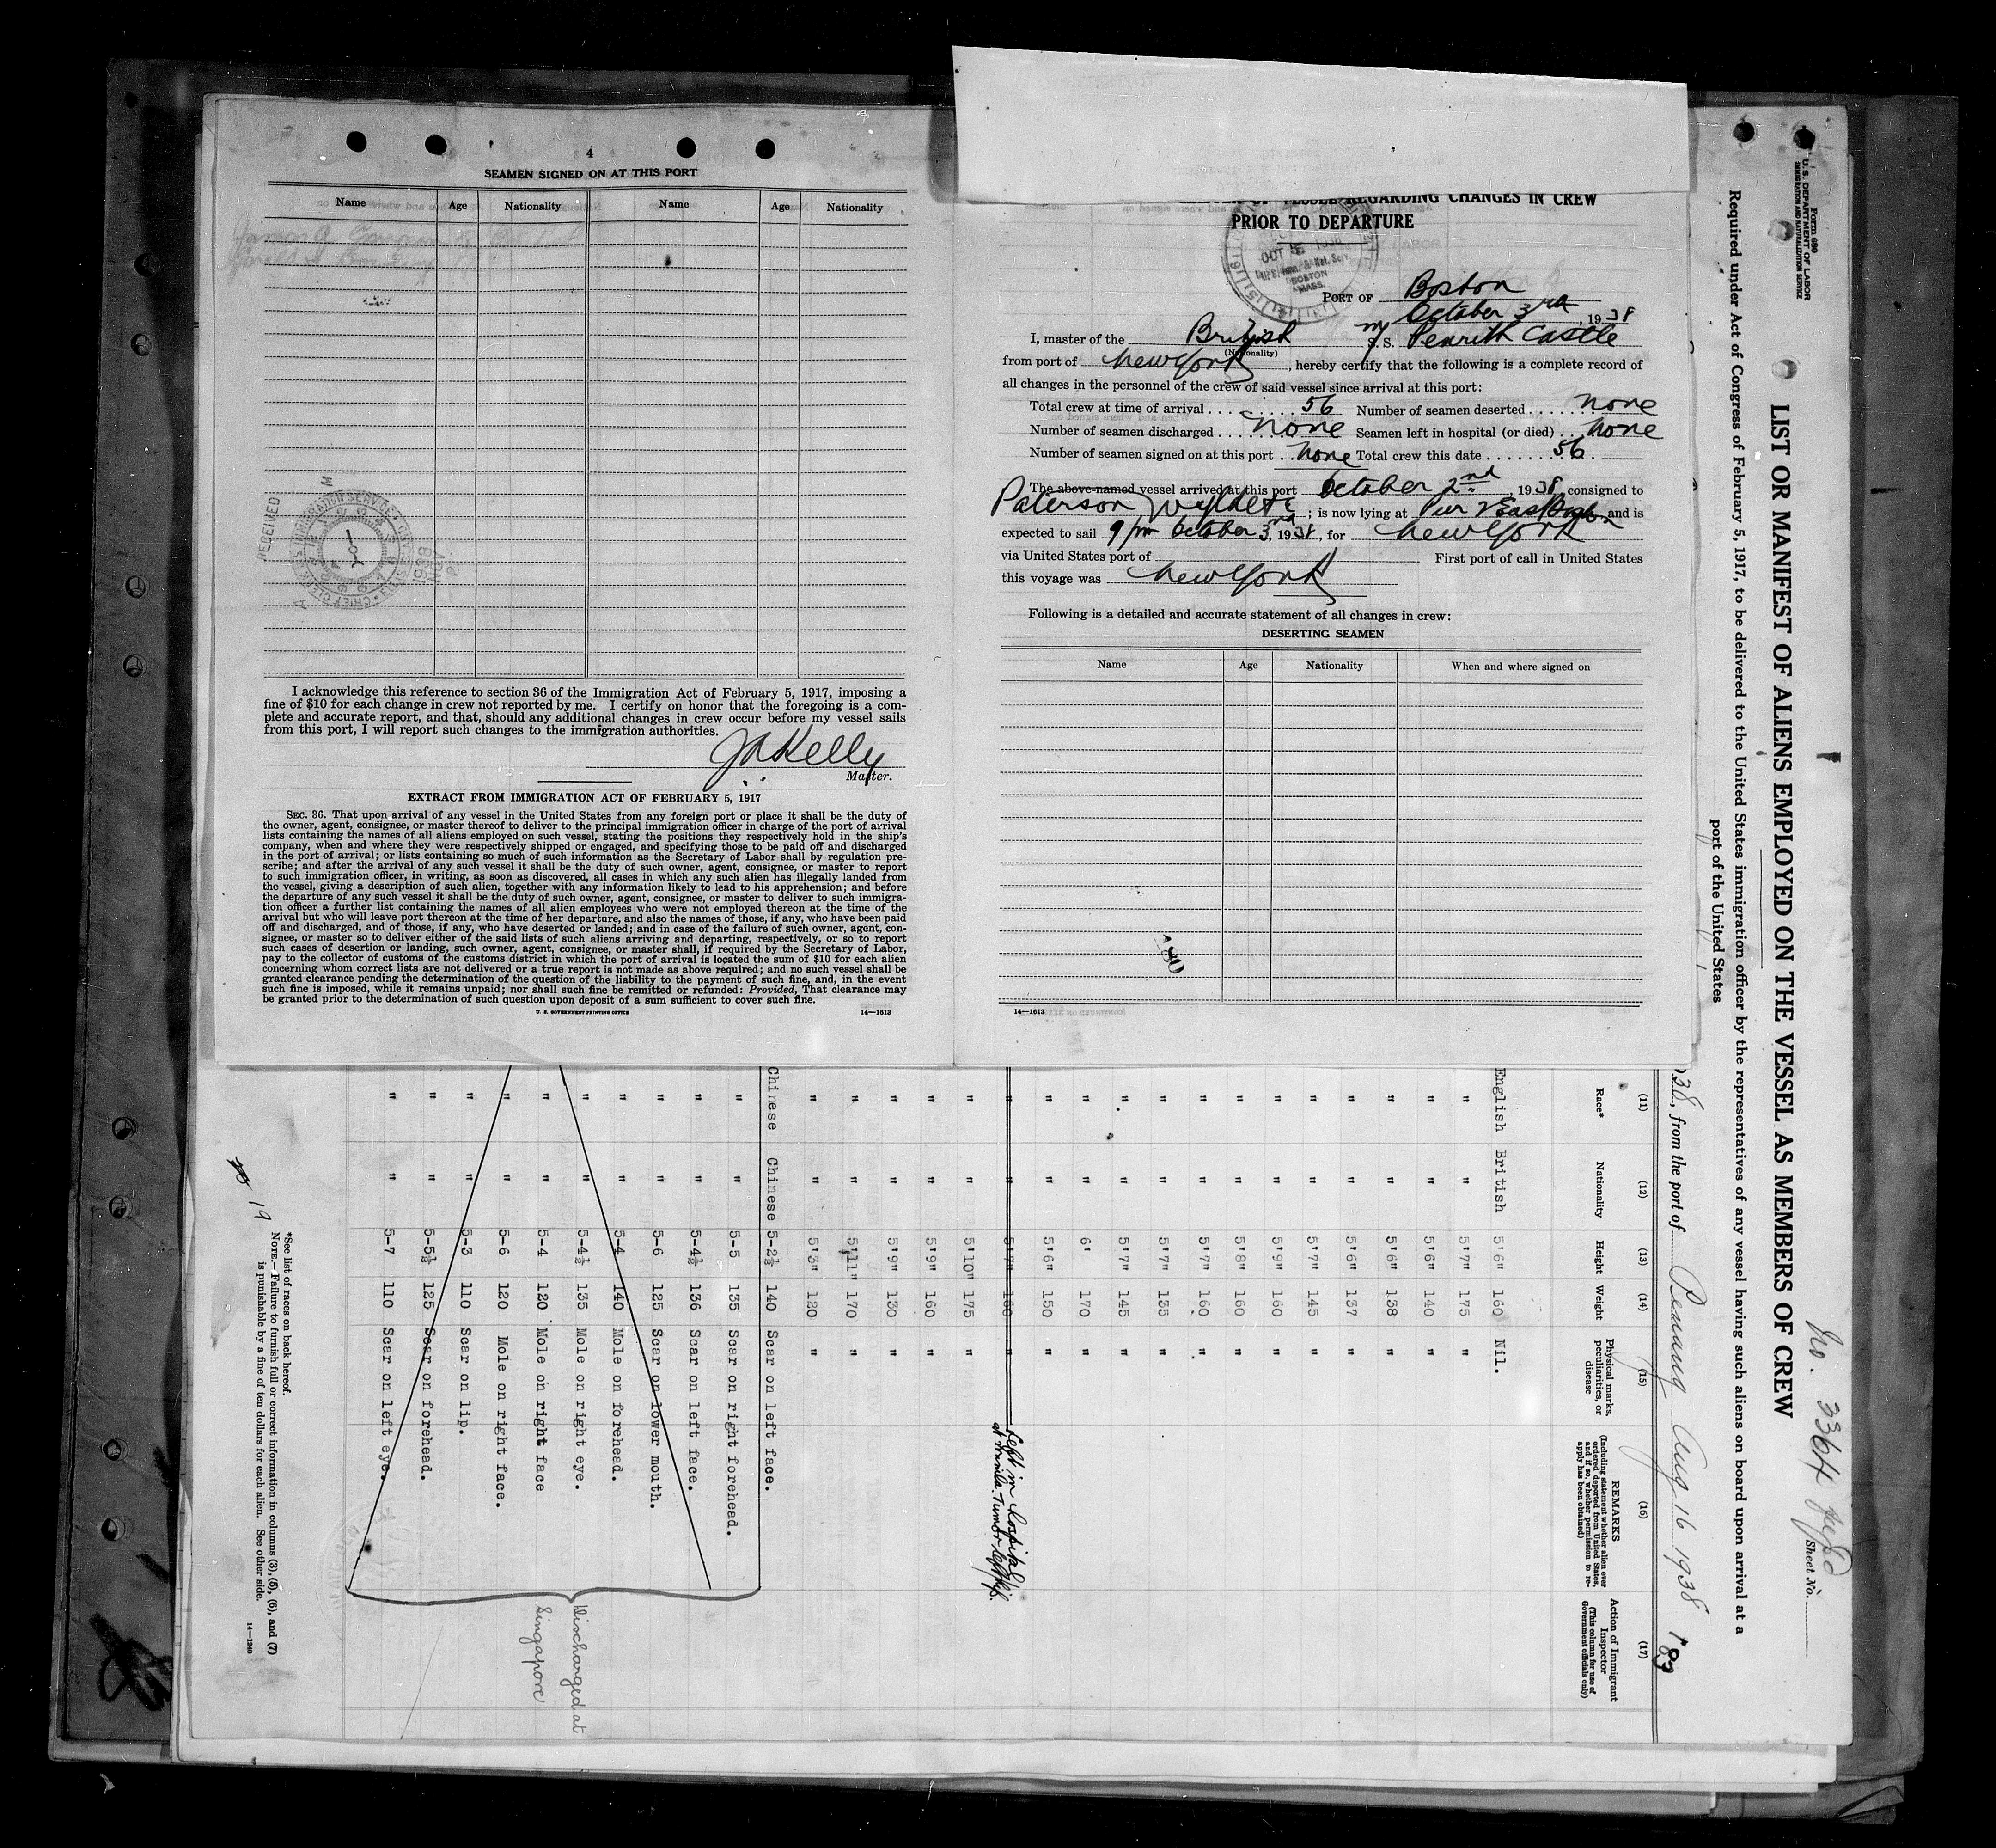 4
SEAMEN SIGNED ON AT THIS PORT
Name Age Nationality Name Age Nationality
RECEIVED
I acknowledge this reference to section 36 of the Immigration Act of February 5, 1917, imposing a
fine of $10 for each change in crew not reported by me. I certify on honor that the foregoing is a com-
plete and accurate report, and that, should any additional changes in crew occur before my vessel sails
from this port, I will report such changes to the immigration authorities.
JAKelly
Master.
EXTRACT FROM IMMIGRATION ACT OF FEBRUARY 5, 1917
SEC. 36. That upon arrival of any vessel in the United States from any foreign port or place it shall be the duty of
the owner, agent, consignee, or master thereof to deliver to the principal immigration officer in charge of the port of arrival
lists containing the names of all aliens employed on such vessel, stating the positions they respectively hold in the ship's
company, when and where they were respectively shipped or engaged, and specifying those to be paid off and discharged
in the port of arrival; or lists containing so much of such information as the Secretary of Labor shall by regulation pre-
scribe; and after the arrival of any such vessel it shall be the duty of such owner, agent, consignee, or master to report
to such immigration officer, in writing, as soon as discovered, all cases in which any such alien has illegally landed from
the vessel, giving a description of such alien, together with any information likely to lead to his apprehension; and before
the departure of any such vessel it shall be the duty of such owner, agent, consignee, or master to deliver to such immigra-
tion officer a further list containing the names of all alien employees who were not employed thereon at the time of the
arrival but who will leave port thereon at the time of her departure, and also the names of those, if any, who have been paid
off and discharged, and of those, if any, who have deserted or landed; and in case of the failure of such owner, agent, con-
signee, or master so to deliver either of the said lists of such aliens arriving and departing, respectively, or so to report
such cases of desertion or landing, such owner, agent, consignee, or master shall, if required by the Secretary of Labor,
pay to the collector of customs of the customs district in which the port of arrival is located the sum of $10 for each alien
concerning whom correct lists are not delivered or a true report is not made as above required; and no such vessel shall be
granted clearance pending the determination of the question of the liability to the payment of such fine, and, in the event
such fine is imposed, while it remains unpaid; nor shall such fine be remitted or refunded: Provided, That clearance may
be granted prior to the determination of such question upon deposit of a sum sufficient to cover such fine.
U. S. GOVERNMENT PRINTING OFFICE 14—1613
OF VESSEL REGARDING CHANGES IN CREW
PRIOR TO DEPARTURE
OCT
BOSTON
MASS.
PORT OF Boston
October 3rd, 1938
I, master of the British M/ S. S. Penrith Castle
(Nationality)
from port of New York, hereby certify that the following is a complete record of
all changes in the personnel of the crew of said vessel since arrival at this port:
Total crew at time of arrival 56 Number of seamen deserted none
Number of seamen discharged none Seamen left in hospital (or died) none
Number of seamen signed on at this port none Total crew this date 56
The above-named vessel arrived at this port October 2nd, 1938 consigned to
Paterson Wylde & Co; is now lying at Pier East Boston and is
expected to sail 9 pm October 3rd, 1938, for New York
via United States port of First port of call in United States
this voyage was New York
Following is a detailed and accurate statement of all changes in crew:
DESERTING SEAMEN
Name Age Nationality When and where signed on
14—1613
Form 680
U. S. DEPARTMENT OF LABOR
IMMIGRATION AND NATURALIZATION SERVICE
No. 3364
Sheet No.
LIST OR MANIFEST OF ALIENS EMPLOYED ON THE VESSEL AS MEMBERS OF CREW
Required under Act of Congress of February 5, 1917, to be delivered to the United States immigration officer by the representatives of any vessel having such aliens on board upon arrival at a
port of the United States
38, from the port of Penang Aug 16 1938
(11) (12) (13) (14) (15) (16) (17)
Race* Nationality Height Weight Physical marks, peculiarities, or disease REMARKS (Including statement whether alien ever ordered deported from United States, and if so, whether permission to re-apply has been obtained) Action of Immigrant Inspector (This column for use of Government officials only)
English British 5'6" 160 Nil.
" " 5'7" 175 "
" " 5'6" 140 "
" " 5'6" 138 "
" " 5'6" 137 "
" " 5'7" 145 "
" " 5'9" 160 "
" " 5'8" 160 "
" " 5'7" 160 "
" " 5'7" 135 "
" " 5'7" 145 "
" " 6' 170 "
" " 5'6" 150 "
" " 5'7" 160 " Left in hospital at Manila.
" " 5'10" 175 "
" " 5'9" 160 "
" " 5'9" 130 "
" " 5'11" 170 "
" " 5'3" 120 "
Chinese Chinese 5-2½ 140 Scar on left face.
" " 5-5 135 Scar on right forehead.
" " 5-4½ 136 Scar on left face.
" " 5-6 125 Scar on lower mouth.
" " 5-4 140 Mole on forehead.
" " 5-4½ 135 Mole on right eye.
" " 5-4 120 Mole on right face
" " 5-6 120 Mole on right face.
" " 5-3 110 Scar on lip.
" " 5-5½ 125 Scar on forehead.
" " 5-7 110 Scar on left eye.
Discharged at
Singapore
19
*See list of races on back hereof.
NOTE.—Failure to furnish full or correct information in columns (3), (5), (6), and (7)
is punishable by a fine of ten dollars for each alien. See other side.
14—1240